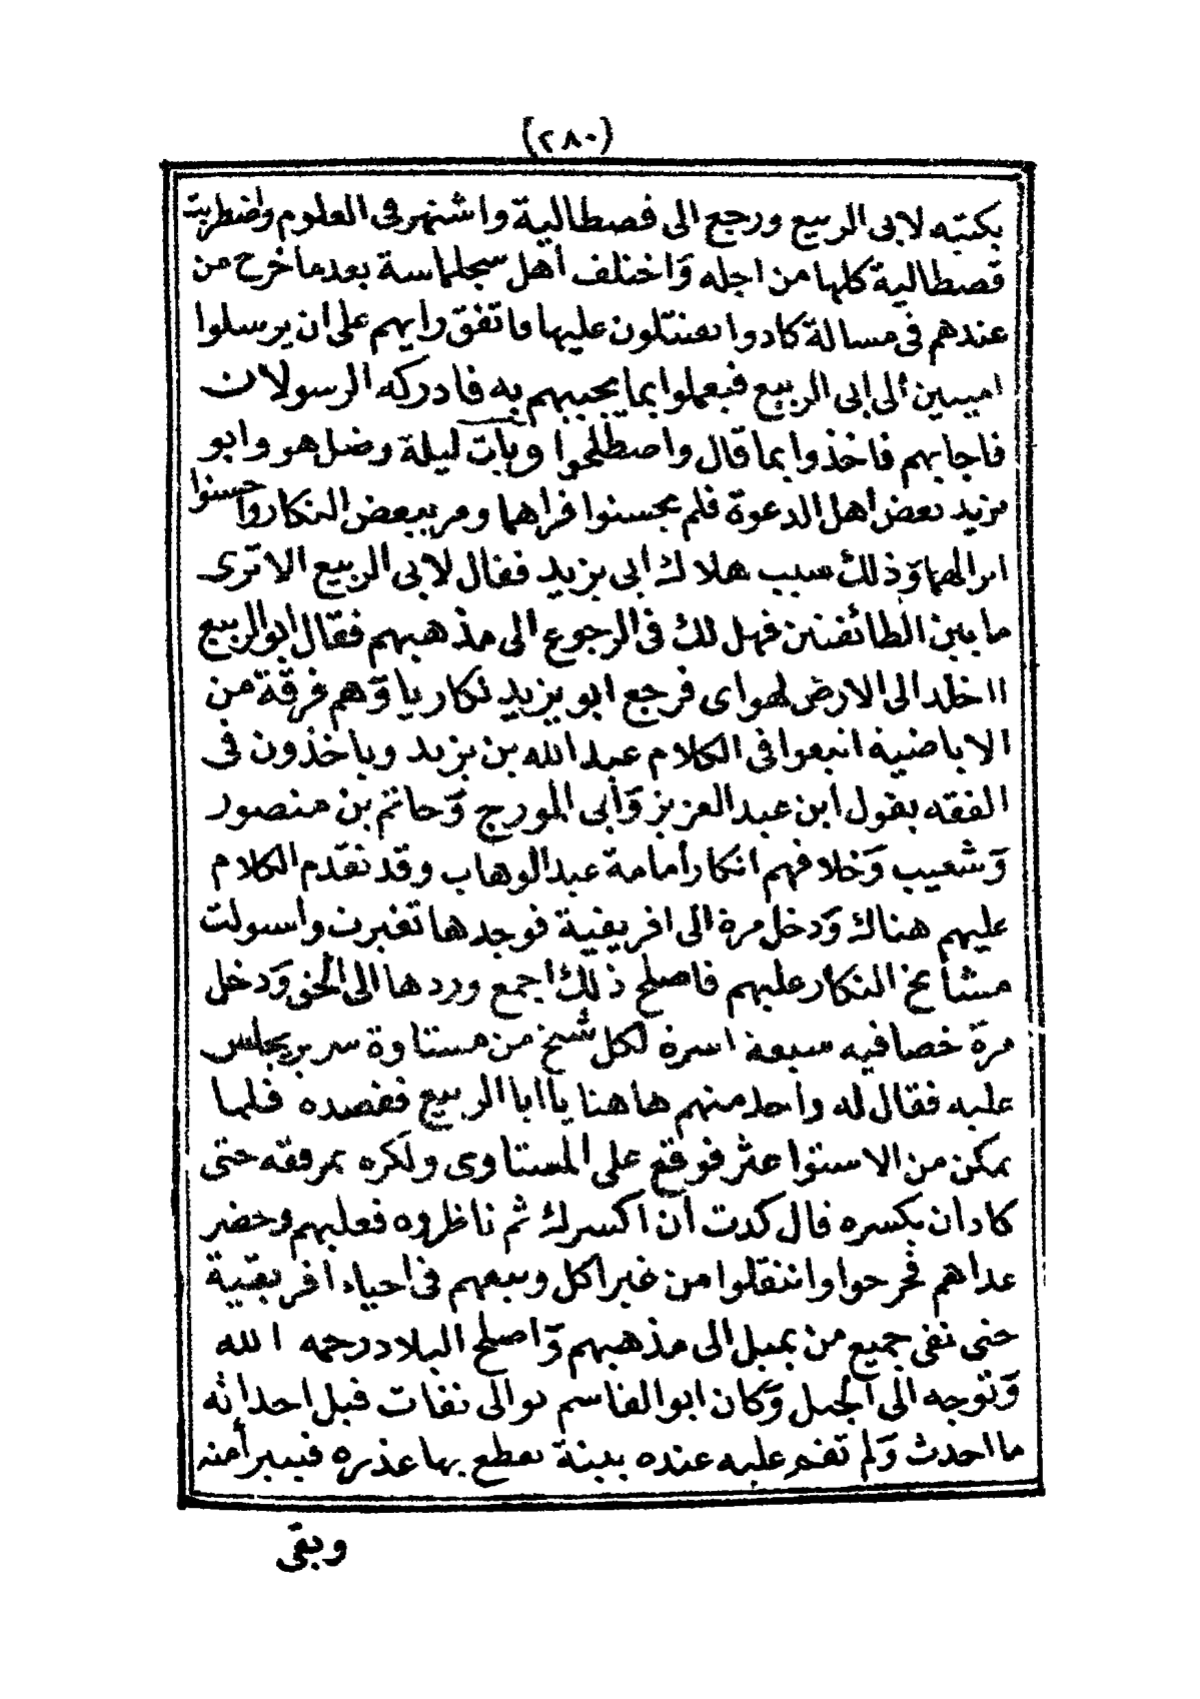 (٢٨٠)
بكتبه لابى الربيع ورجع الى قصطالية واشتهر فى العلوم واضطربت
قصطالية كلها من اجله وَاختلف أهل سجلماسة بعدما خرج من
عندهم فى مسالة كادوا يقتتلون عليها فاتفق رايهم على ان يرسلوا
امينين ألى ابى الربيع فيعملوا بما يجيبهم به فادركه الرسولان
فاجابهم فاخذوا بما قال واصطلحوا وبات ليلة وصل هو وابو
يزيد بعض أهل الدعوة فلم يحسنوا قراهما ومر ببعض النكار واحسنوا
انزالهما وَذلك سبب هلاك ابى يزيد فقال لابى الربيع الاترى
ما بين الطائفتين فهل لك فى الرجوع الى مذهبهم فقال ابو الربيع
ااخلد الى الارض لهواى فرجع ابو يزيد نكاريا وَهم فرقة من
الاباضية اتبعوا فى الكلام عبد الله بن يزيد وياخذون فى
الفقه بقول ابن عبد العزيز وَأبى المورج وَحاتم بن منصور
وَشعيب وَخلافهم انكار أمامة عبد الوهاب وقد تقدم الكلام
عليهم هناك وَدخل مرة الى افريقية فوجدها تغيرت واسولت
مشايخ النكار عليهم فاصلح ذلك اجمع وردها الى الحق وَدخل
مرة خصا فيه سبعة اسرة لكل شيخ من مستاوة سرير يجلس
عليه فقال له واحد منهم هاهنا يا ابا الربيع فقصده فلما
تمكن من الاستوا عثر فوقع على المستاوى ولكزه بمرفقه حتى
كاد ان يكسره قال كدت ان اكسرك ثم ناظروه فعلبهم وحضر
غداهم فخرحوا وانتقلوا من غير اكل وتبعهم فى احياء افريقية
حتى نفى جميع من يميل الى مذهبهم وَاصلح البلاد رحمه الله
وَتوجه الى الجبل وَكان ابو القاسم يوالى نفات قبل احداثه
ما احدث وَلم تقم عليه عنده بينة تقطع بها عذره فيبرأ منه
وبقى